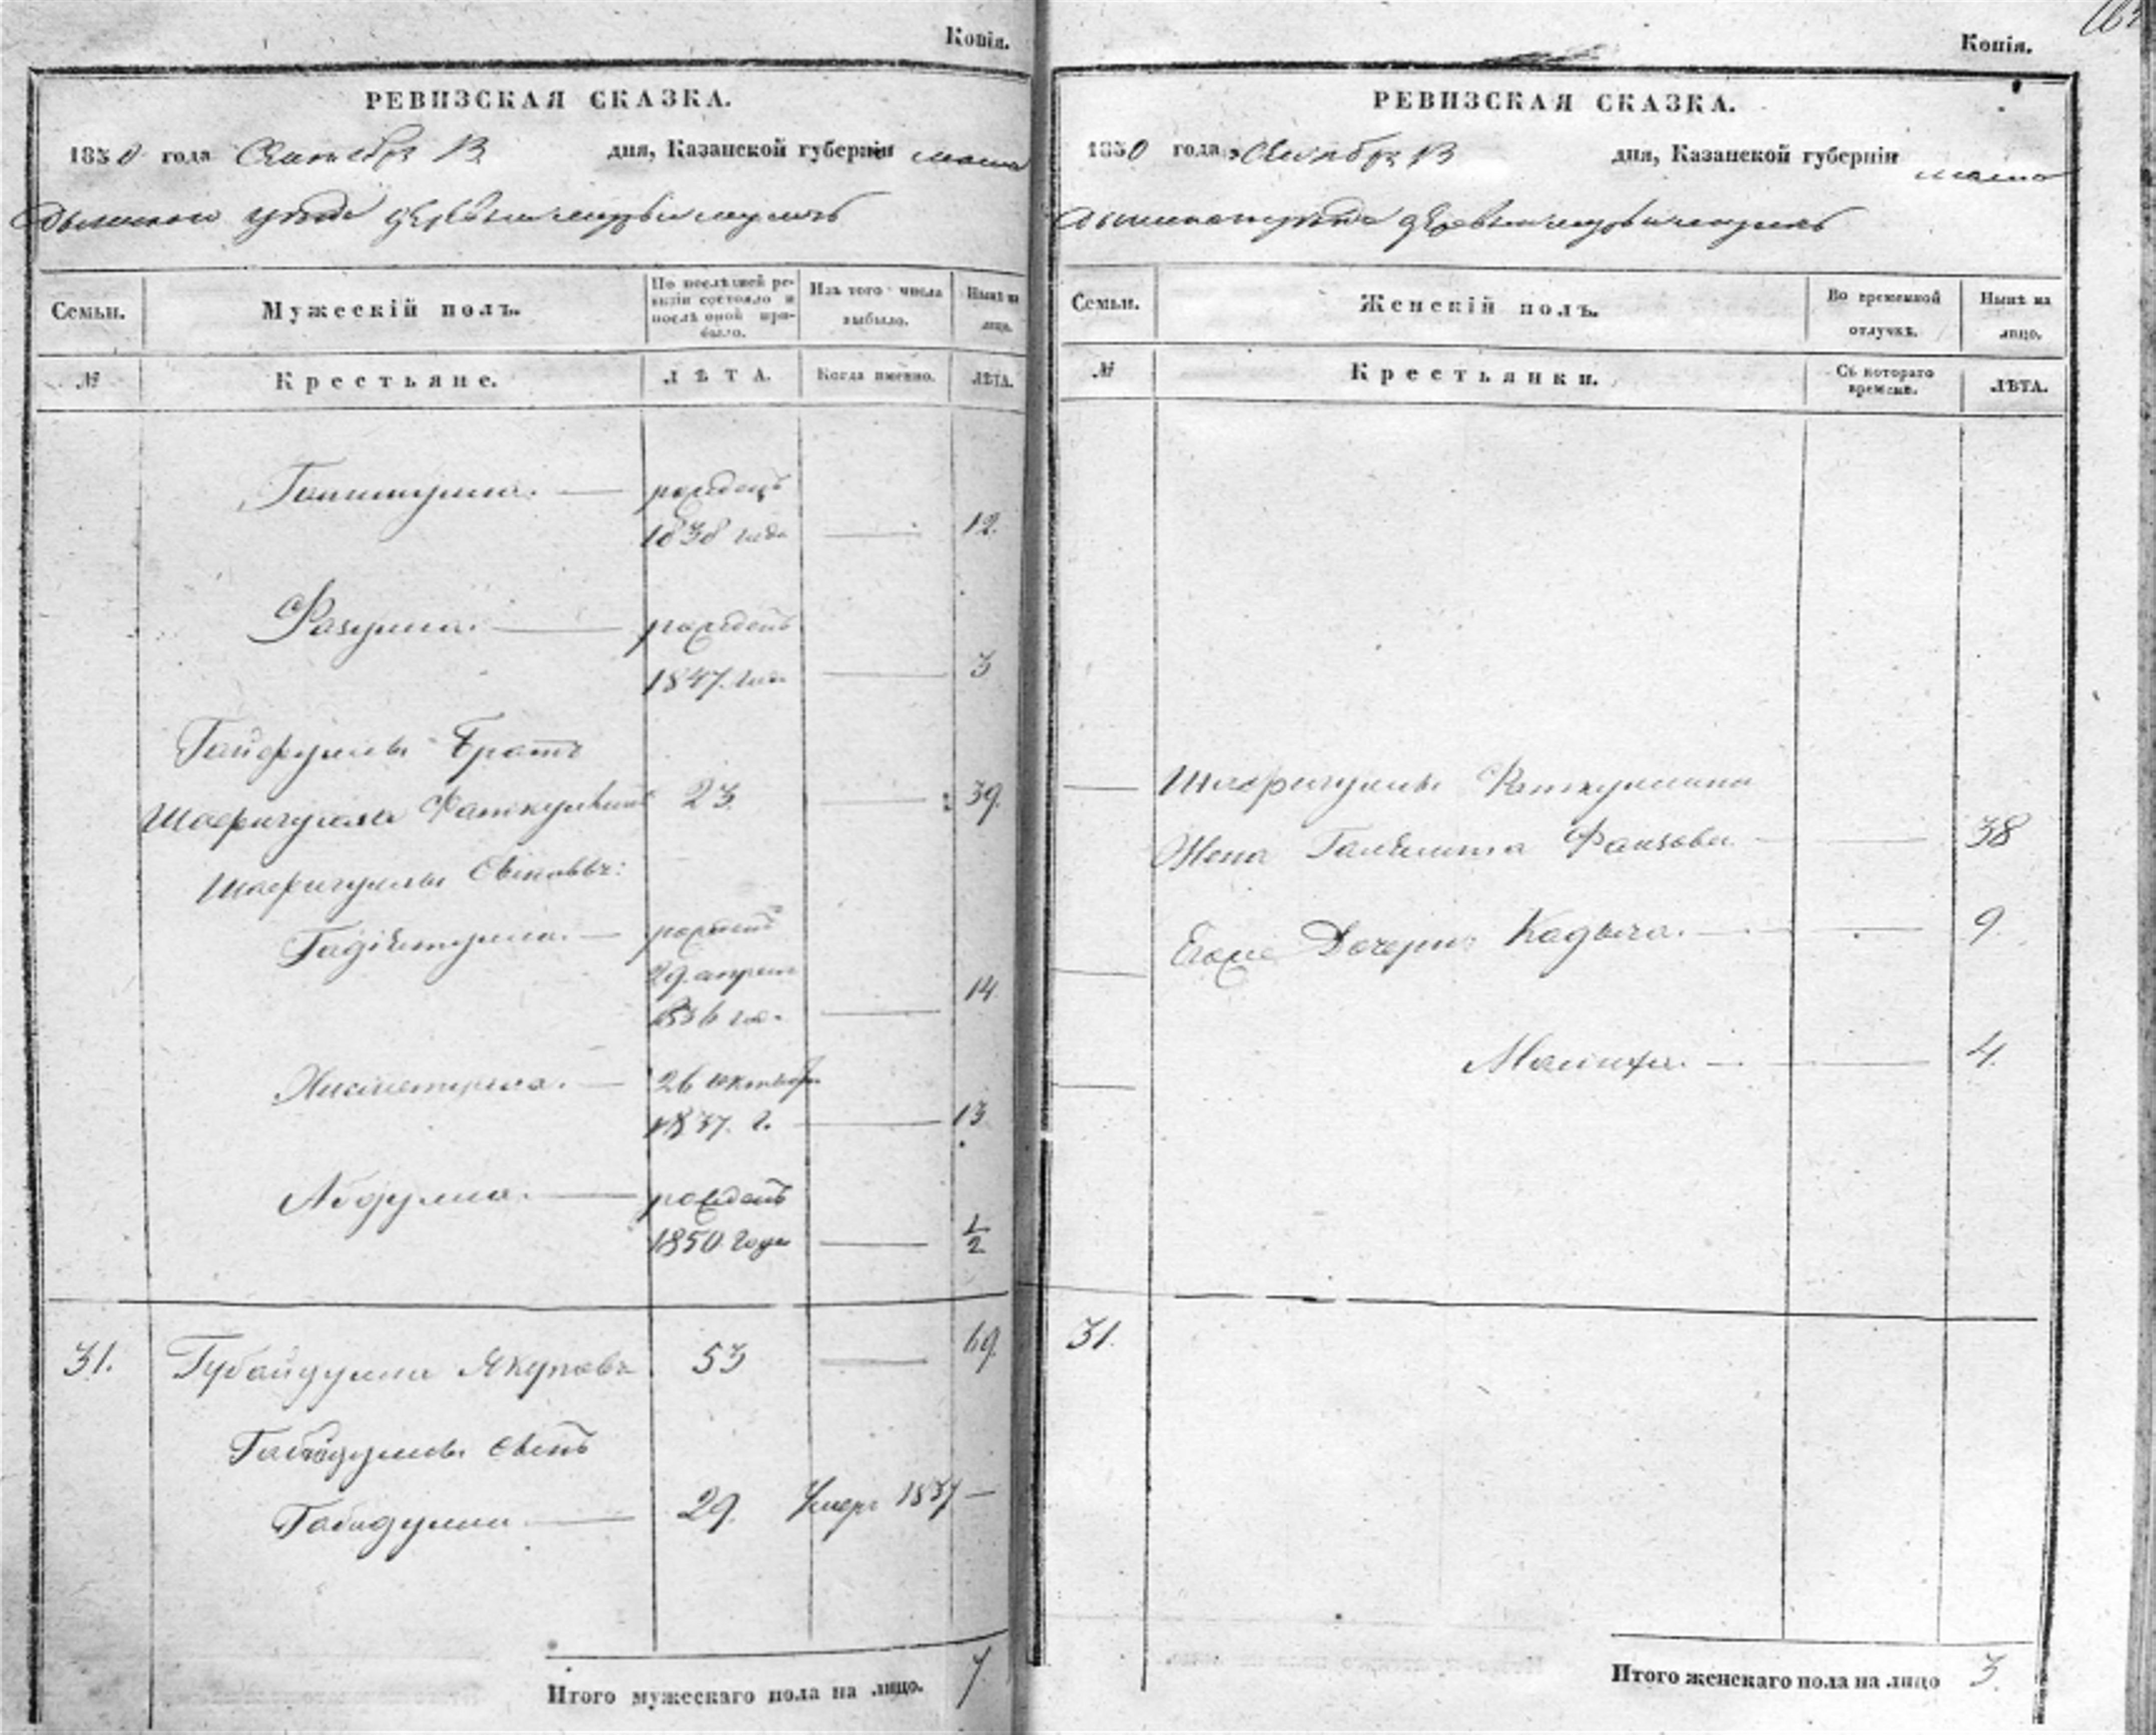 Копія.
РЕВИЗСКАЯ СКАЗКА.
1850 года Октября 13 дня, Казанской губерніи мама
дышскаго уѣзда деревни
Семьи.
Мужескій полъ.
По послѣдней ре-
визіи состояло и
послѣ оной при-
было.
Изъ того числа
выбыло.
Нынѣ на
лицо.
№
Крестьяне.
ЛѢТА.
Когда именно.
ЛѢТА.
рожденъ
1838 года 12.
Фазулла. рожденъ
1847. года 3
Гайфуллы Братъ
Шафигулла Фаткуллинъ 23 39.
Шафигуллы Сыновья:
рожденъ
29 апреля
1836 го. 14
26 октября
1837. г. 13
Абдулла. рожденъ
1850 года 1/2
31. Губайдулла Якуповъ 53 69.
Сынъ
Габидулла 29. Умеръ 1837 —
Итого мужескаго пола на лицо. 7.
Копія.
РЕВИЗСКАЯ СКАЗКА.
1850 года Октября 13 дня, Казанской губерніи мама
дышскаго уѣзда деревни
Семьи.
Женскій полъ.
Во временной
отлучкѣ.
Нынѣ на
лицо.
№
Крестьянки.
Съ котораго
времени.
ЛѢТА.
Шафигуллы Фаткуллина
Жена Фаизова 38
Его же Дочери Кадыча. 9
4.
31.
Итого женскаго пола на лицо 3.